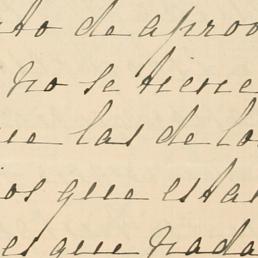 to de apro
no se tiene
ue las de lo
os que esta
es que nada